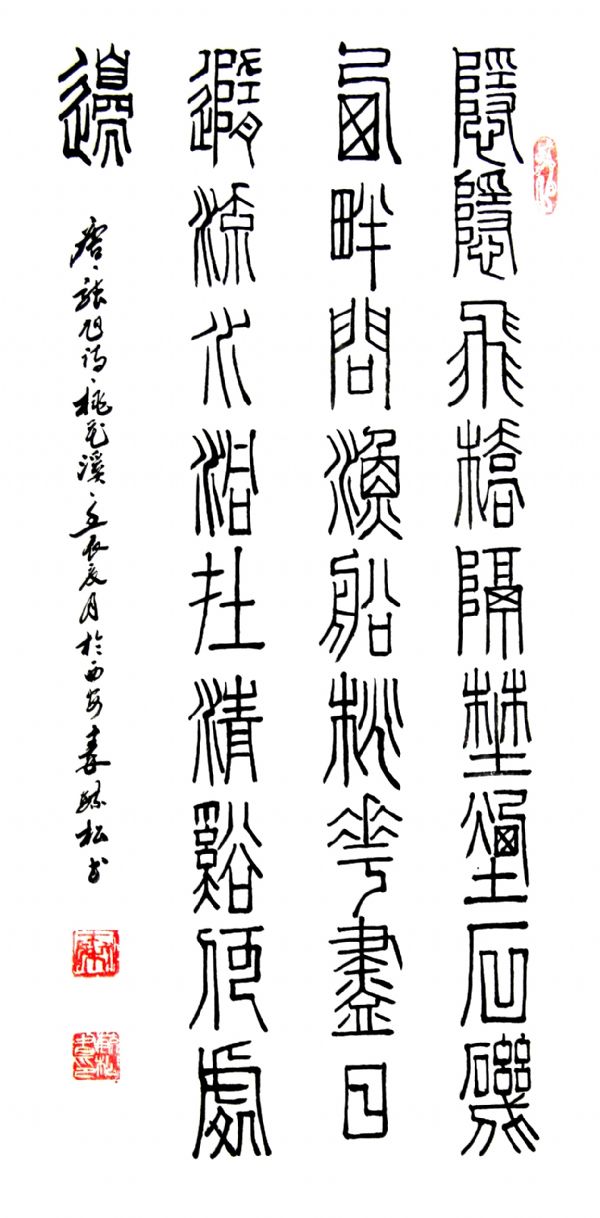 隱隱飛橋隔埜煙石磯
西畔問漁船桃華盡日
隨流水洞在清谿何處
邊
唐、張旭詩、桃花溪、壬辰夏月於西安 松书